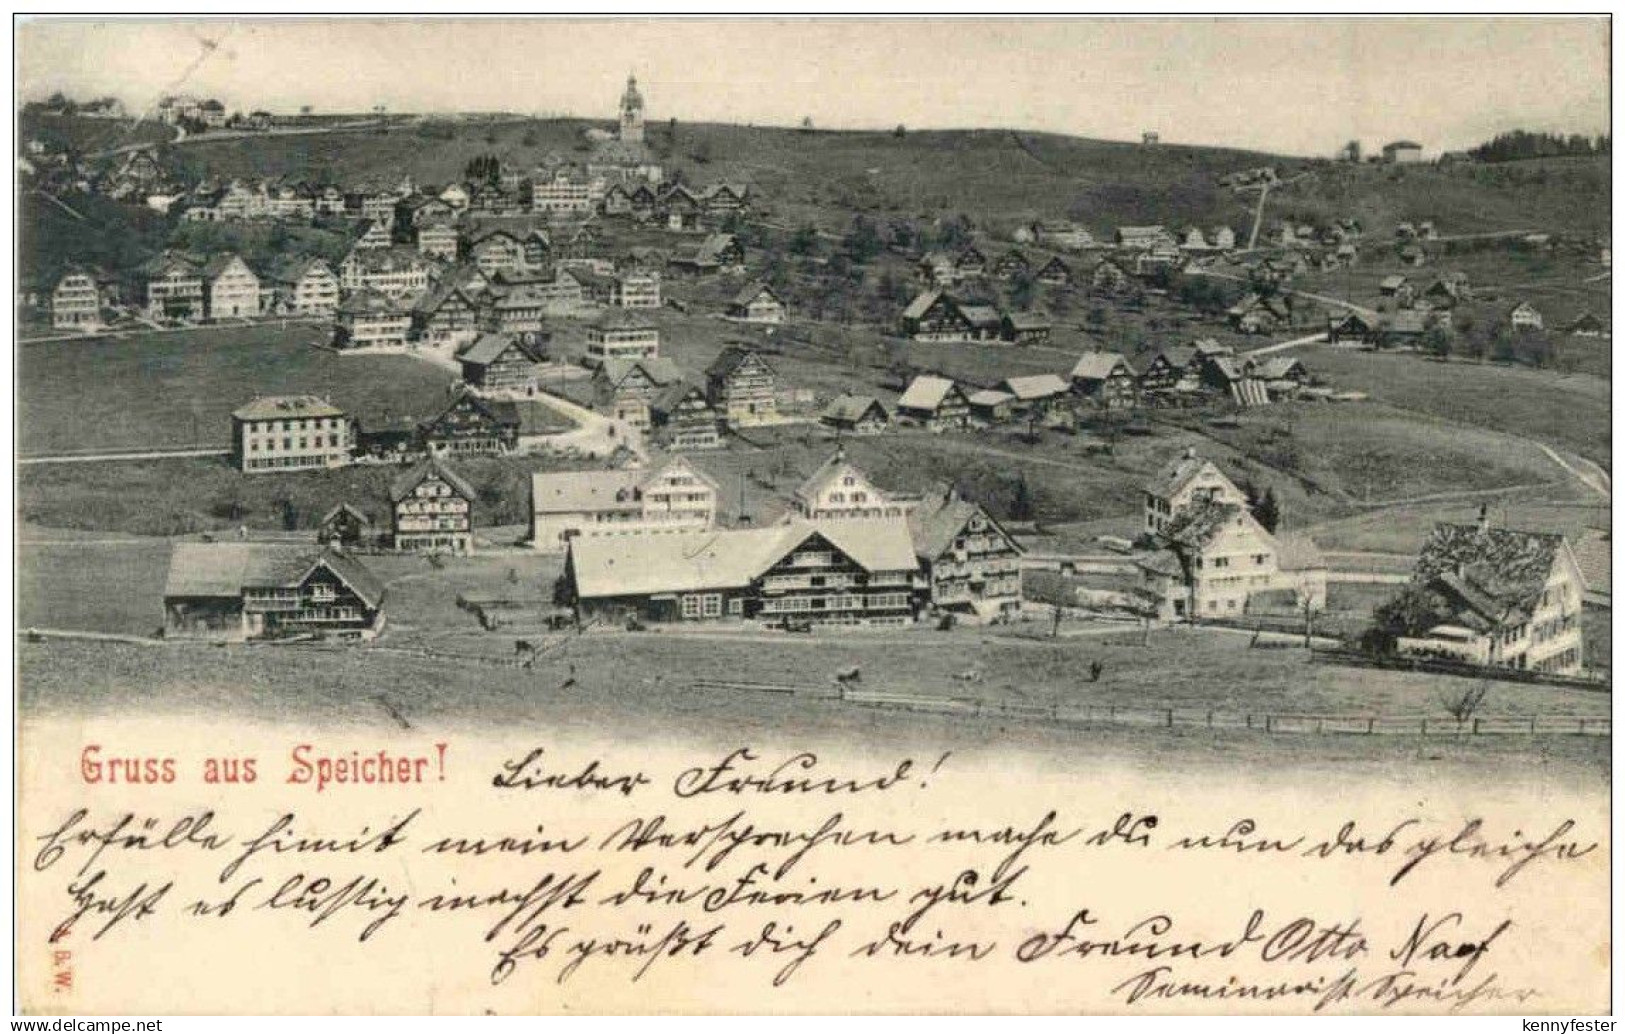 Gruss aus Speicher!
Lieber Freund!
Erfülle himit mein Versprechen mache du nun das gleiche
Hast es lustig machst die Ferien gut.
Es grüßt dich dein Freund Otto Naef
Seminarist Speicher
B. W.
www.delcampe.net
kennyfester